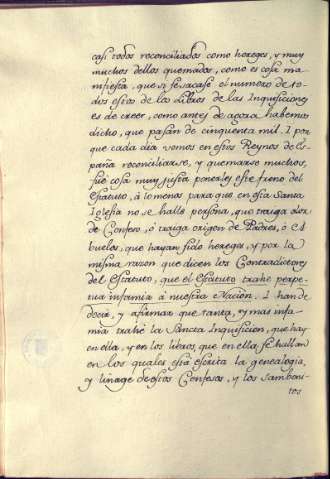 casi todos reconciliados como hereges, y muy
muchos dellos quemados, como es cosa ma-
nifiesta, que si se sacase el numero de to-
dos estos de los Libros de las Inquisiciones
es de creer, como antes de agora habemos
dicho, que pasan de cinquenta mil. I por
que cada dia vemos en estos Reynos de Es-
paña reconciliarse, y quemarse muchos,
fué cosa muy justa ponerles este freno del
Estatuto, à lo menos para que en esta Santa
Iglesia no se halle persona, que traiga olor
de Confeso, ò traiga origen de Padres, ò A-
buelos, que hayan sido hereges, y por la
misma razon que dicen los Contradictores
del Estatuto, que el Estatuto trahe perpe-
tua infamia à nuestra Nacion. I han de
decir, y afirmar que tanta, y mas infa-
mia trahe la Sancta Inquisicion, que hay
en ella, y en los libros, que en ella se hallan
en los quales está escrita la genealogia,
y linage de estos Confesos, y los Samboni-
tos